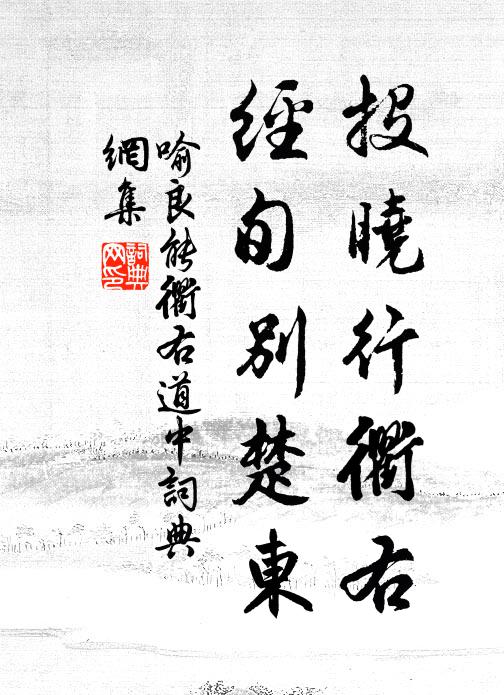 投曉行衢右
經旬別楚東
喻良能衢右道中詞典
網集
詞典网印